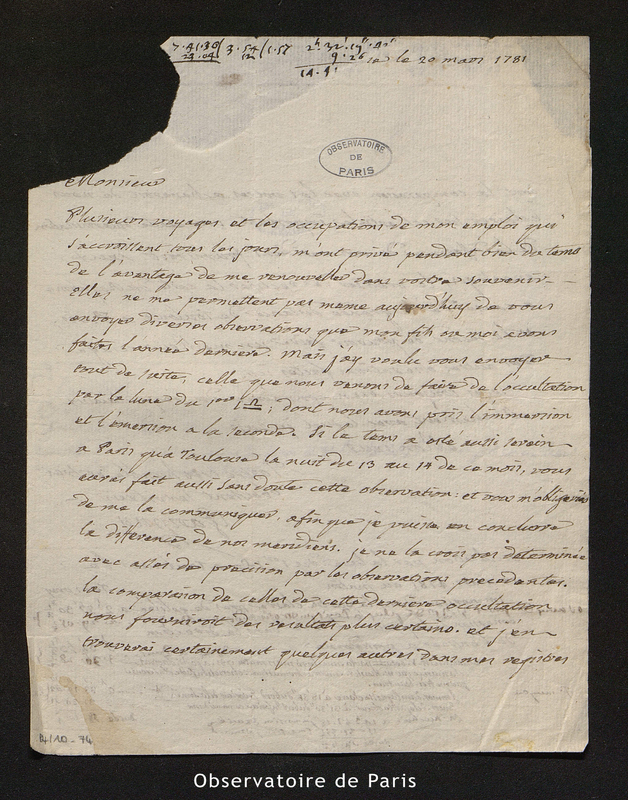 7.41.36 3.54 1.57 2h 32' 19"
24.04 12 9.26
14.41
le 20 mars 1781
OBSERVATOIRE
DE
PARIS
Monsieur
Plusieurs voyages et les occupations de mon emploi qui
s'accroissent tous les jours, m'ont privé pendant bien du tems
de l'avantage de me renouveller dans vostre souvenir
elles ne me permettent pas meme aujourd'huy de vous
envoyer diverses observations que mon fils ou moi avons
faites l'année derniere. Mais j'ay voulu vous envoyer
tout de suite, celle que nous venons de faire de l'occultation
par la lune du 1er ♎; dont nous avons pris l'immersion
et l'emersion a la seconde. Si le tems a esté aussi serein
a Paris qu'a Toulouse la nuit du 13 au 14 de ce mois, vous
aurés fait aussi sans doute cette observation: et vous m'obligeriés
de me la communiquer, afin que je puisse en conclurre
la difference de nos meridiens. je ne la crois pas determinée
avec assés de precision par les observations precedentes.
la comparaison de celles de cette derniere occultation
nous fourniroit des resultats plus certains. et j'en
trouverai certainement quelques autres dans mes registres
14/10-74
Observatoire de Paris